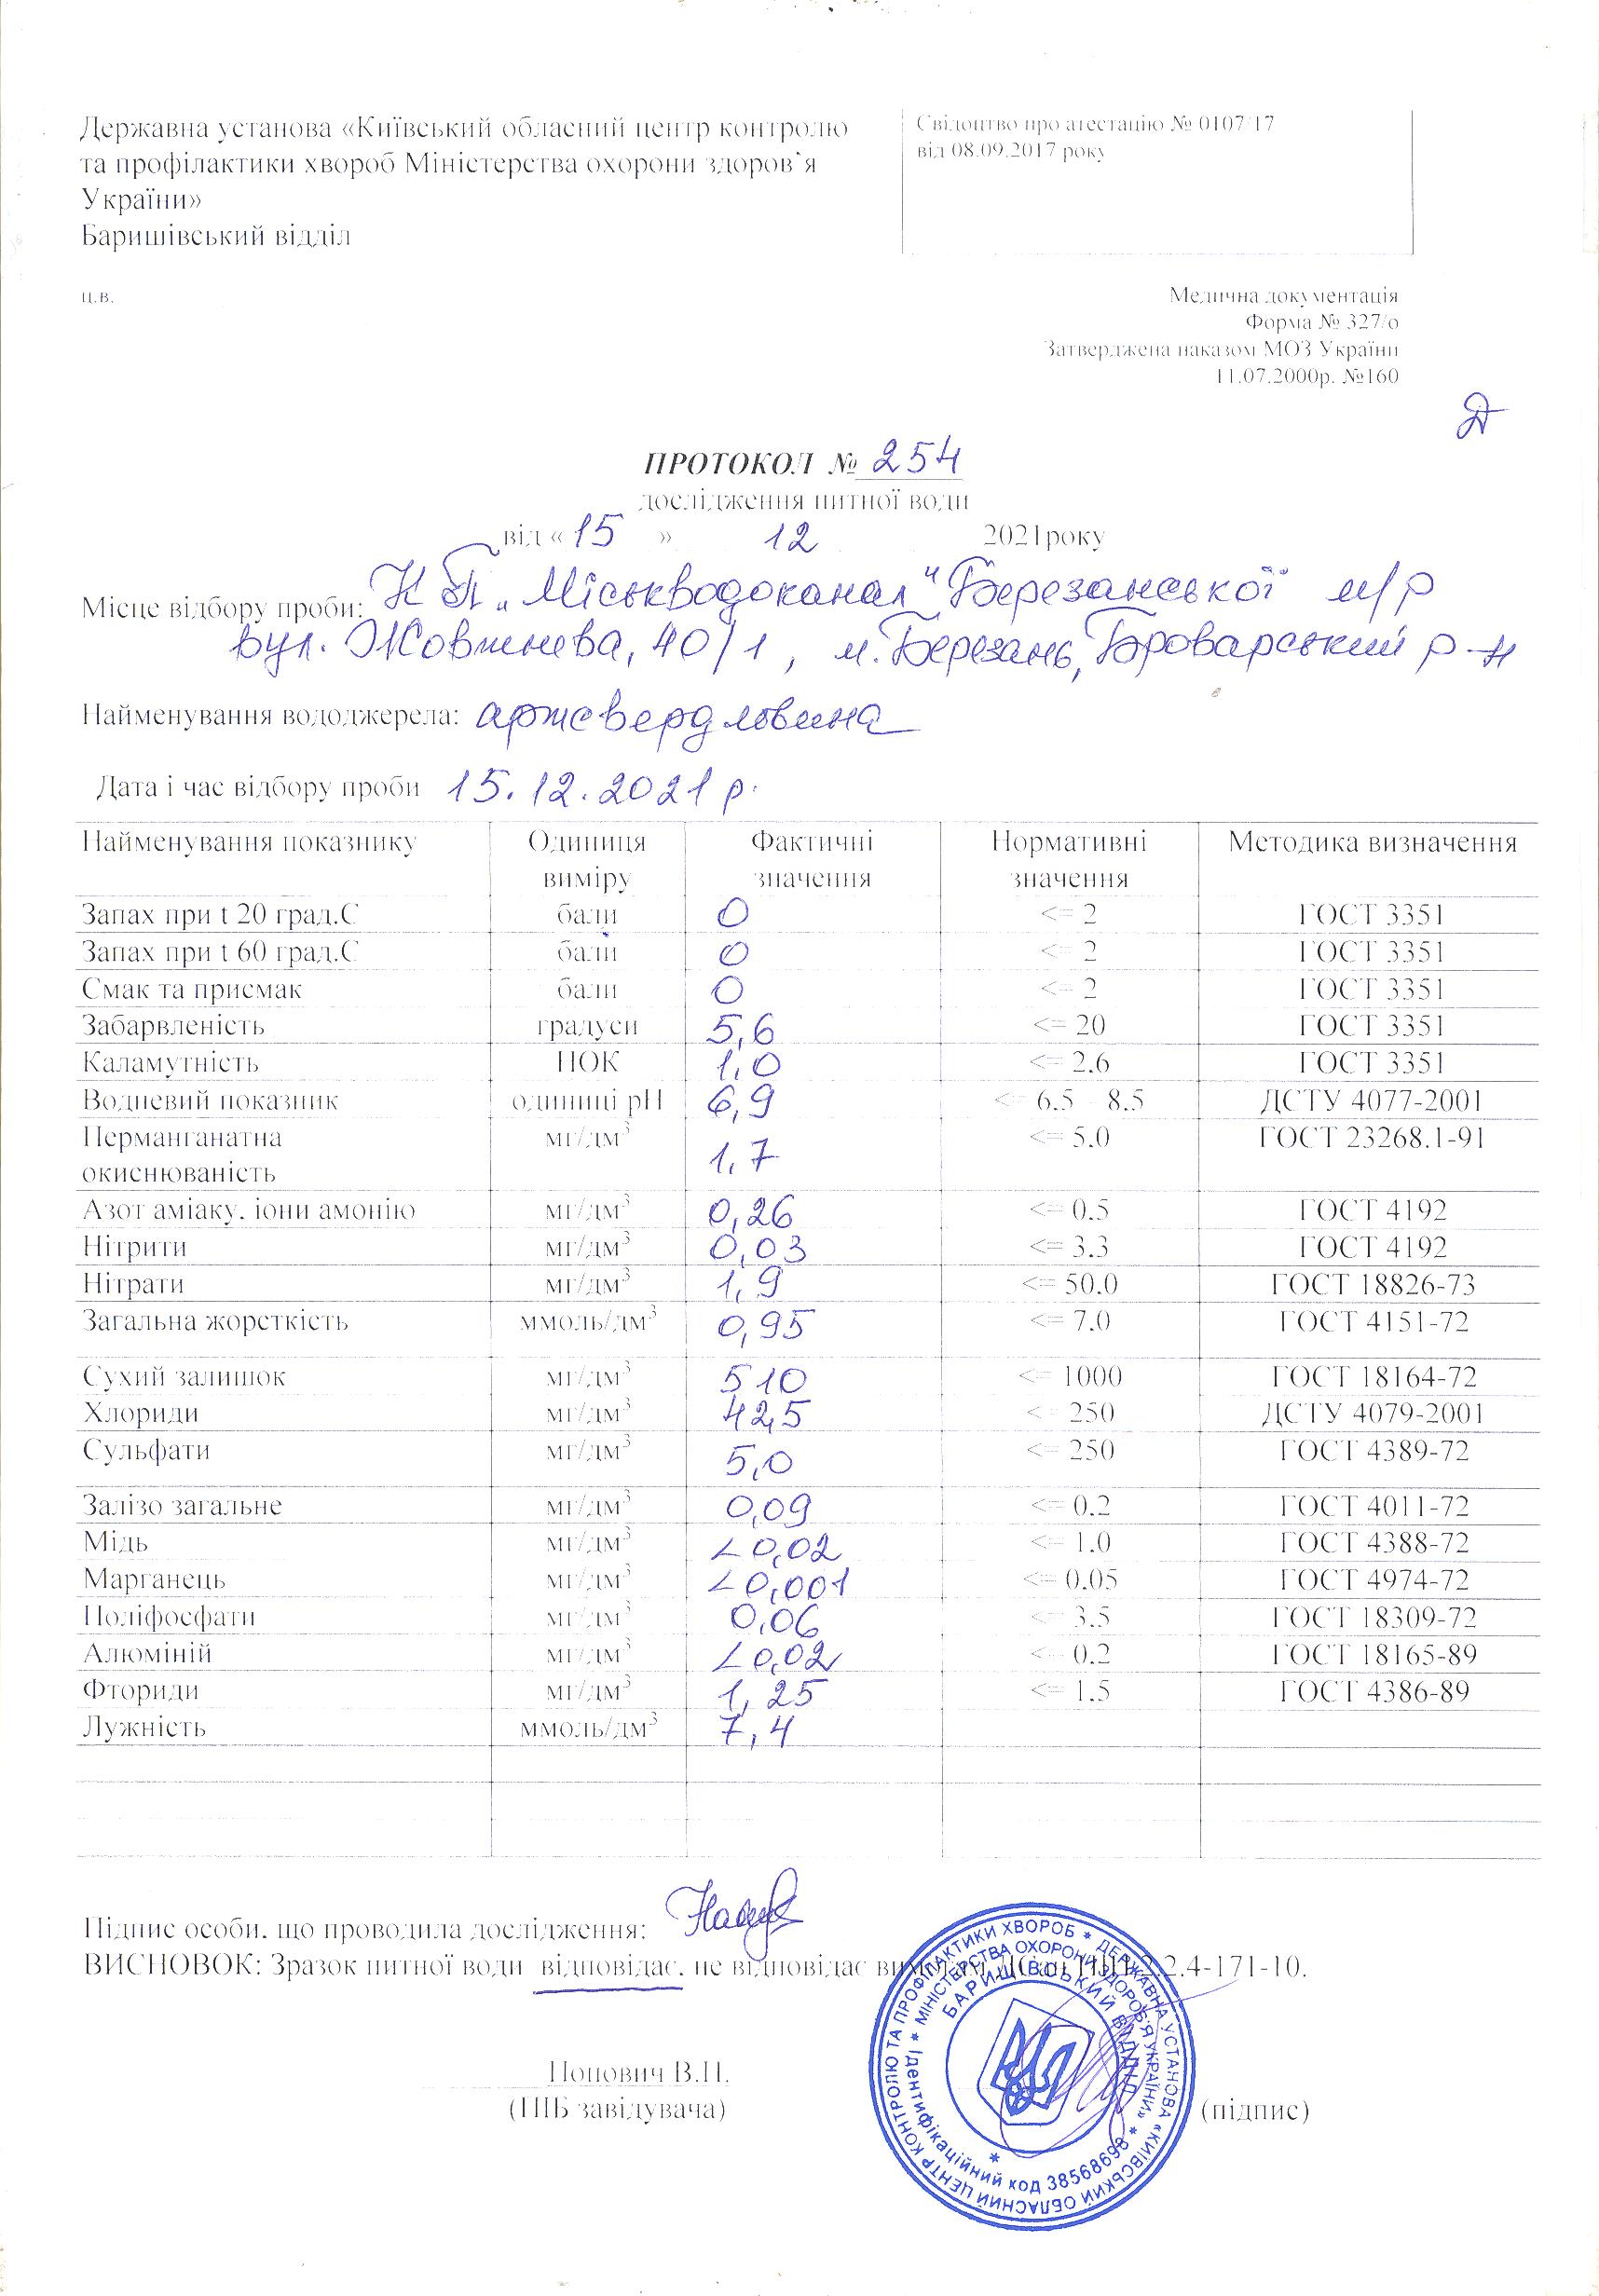 Державна установа «Київський обласний центр контролю
та профілактики хвороб Міністерства охорони здоров`я
України»
Баришівський відділ
Свідоцтво про атестацію № 0107/17
від 08.09.2017 року
ц.в.
Медична документація
Форма № 327/о
Затверджена наказом МОЗ України
11.07.2000р. №160
ПРОТОКОЛ № 254
дослідження питної води
від « 15 » 12 2021року
Місце відбору проби: КП „Міськводоканал" Березанської м/р
вул. Жовтнева, 40/1, м. Березань, Броварський р-н
Найменування вододжерела: артсвердловина
Дата і час відбору проби 15.12.2021 р.
Найменування показнику Одиниця виміру Фактичні значення Нормативні значення Методика визначення
Запах при t 20 град.С бали 0 <= 2 ГОСТ 3351
Запах при t 60 град.С бали 0 <= 2 ГОСТ 3351
Смак та присмак бали 0 <= 2 ГОСТ 3351
Забарвленість градуси 5,6 <= 20 ГОСТ 3351
Каламутність НОК 1,0 <= 2.6 ГОСТ 3351
Водневий показник одиниці рН 6,9 <= 6.5 – 8.5 ДСТУ 4077-2001
Перманганатна окиснюваність мг/дм³ 1,7 <= 5.0 ГОСТ 23268.1-91
Азот аміаку. іони амонію мг/дм³ 0,26 <= 0.5 ГОСТ 4192
Нітрити мг/дм³ 0,03 <= 3.3 ГОСТ 4192
Нітрати мг/дм³ 1,9 <= 50.0 ГОСТ 18826-73
Загальна жорсткість ммоль/дм³ 0,95 <= 7.0 ГОСТ 4151-72
Сухий залишок мг/дм³ 510 <= 1000 ГОСТ 18164-72
Хлориди мг/дм³ 42,5 <= 250 ДСТУ 4079-2001
Сульфати мг/дм³ 5,0 <= 250 ГОСТ 4389-72
Залізо загальне мг/дм³ 0,09 <= 0.2 ГОСТ 4011-72
Мідь мг/дм³ <0,02 <= 1.0 ГОСТ 4388-72
Марганець мг/дм³ <0,001 <= 0.05 ГОСТ 4974-72
Поліфосфати мг/дм³ 0,06 <= 3.5 ГОСТ 18309-72
Алюміній мг/дм³ <0,02 <= 0.2 ГОСТ 18165-89
Фториди мг/дм³ 1,25 <= 1.5 ГОСТ 4386-89
Лужність ммоль/дм³ 7,4
Підпис особи. що проводила дослідження:
ВИСНОВОК: Зразок питної води відповідає. не відповідає вимогам ДСанПіН 2.2.4-171-10.
Попович В.П.
(ПІБ завідувача)
(підпис)
ДЕРЖАВНА УСТАНОВА «КИЇВСЬКИЙ ОБЛАСНИЙ ЦЕНТР КОНТРОЛЮ ТА ПРОФІЛАКТИКИ ХВОРОБ
МІНІСТЕРСТВА ОХОРОНИ ЗДОРОВ'Я УКРАЇНИ»
БАРИШІВСЬКИЙ ВІДДІЛ
Ідентифікаційний код 38568698